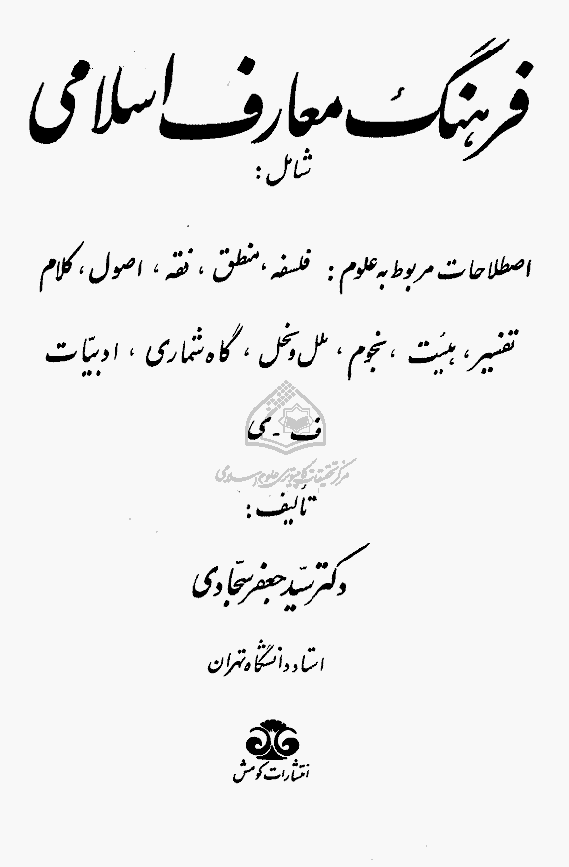 فرهنگ معارف اسلامی
شامل:
اصطلاحات مربوط به علوم: فلسفه، منطق، فقه، اصول، کلام
تفسیر، هیئت، نجوم، ملل و نحل، گاه شماری، ادبیّات
ف ـ ی
مرکز تحقیقات کامپیوتری علوم اسلامی
تألیف:
دکتر سیّد جعفر سجّادی
استاد دانشگاه تهران
انتشارات کومش